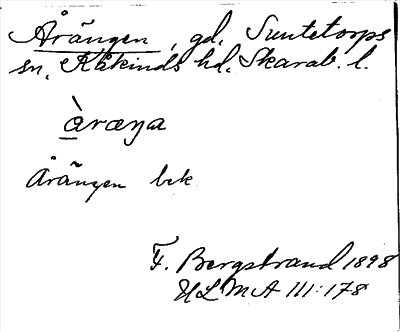 Årängen, gd, Suntetorps
sn, Kåkinds hd. Skarab. l.
àræŋa
Årängen bek.
F. Bergstrand 1898
ULMA 111:178